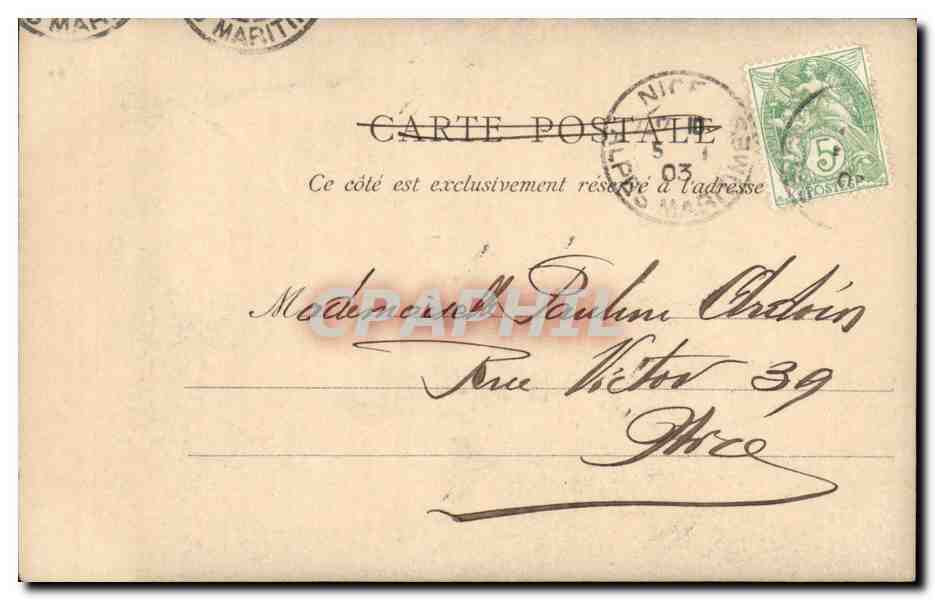 MARITI
NICE
5 1
03
ALPES MARITIMES
5
POSTES
CARTE POSTALE
Ce côté est exclusivement réservé à l'adresse
CPAPHIL
Mademoiselle Pauline
Rue Victor 39
Nice